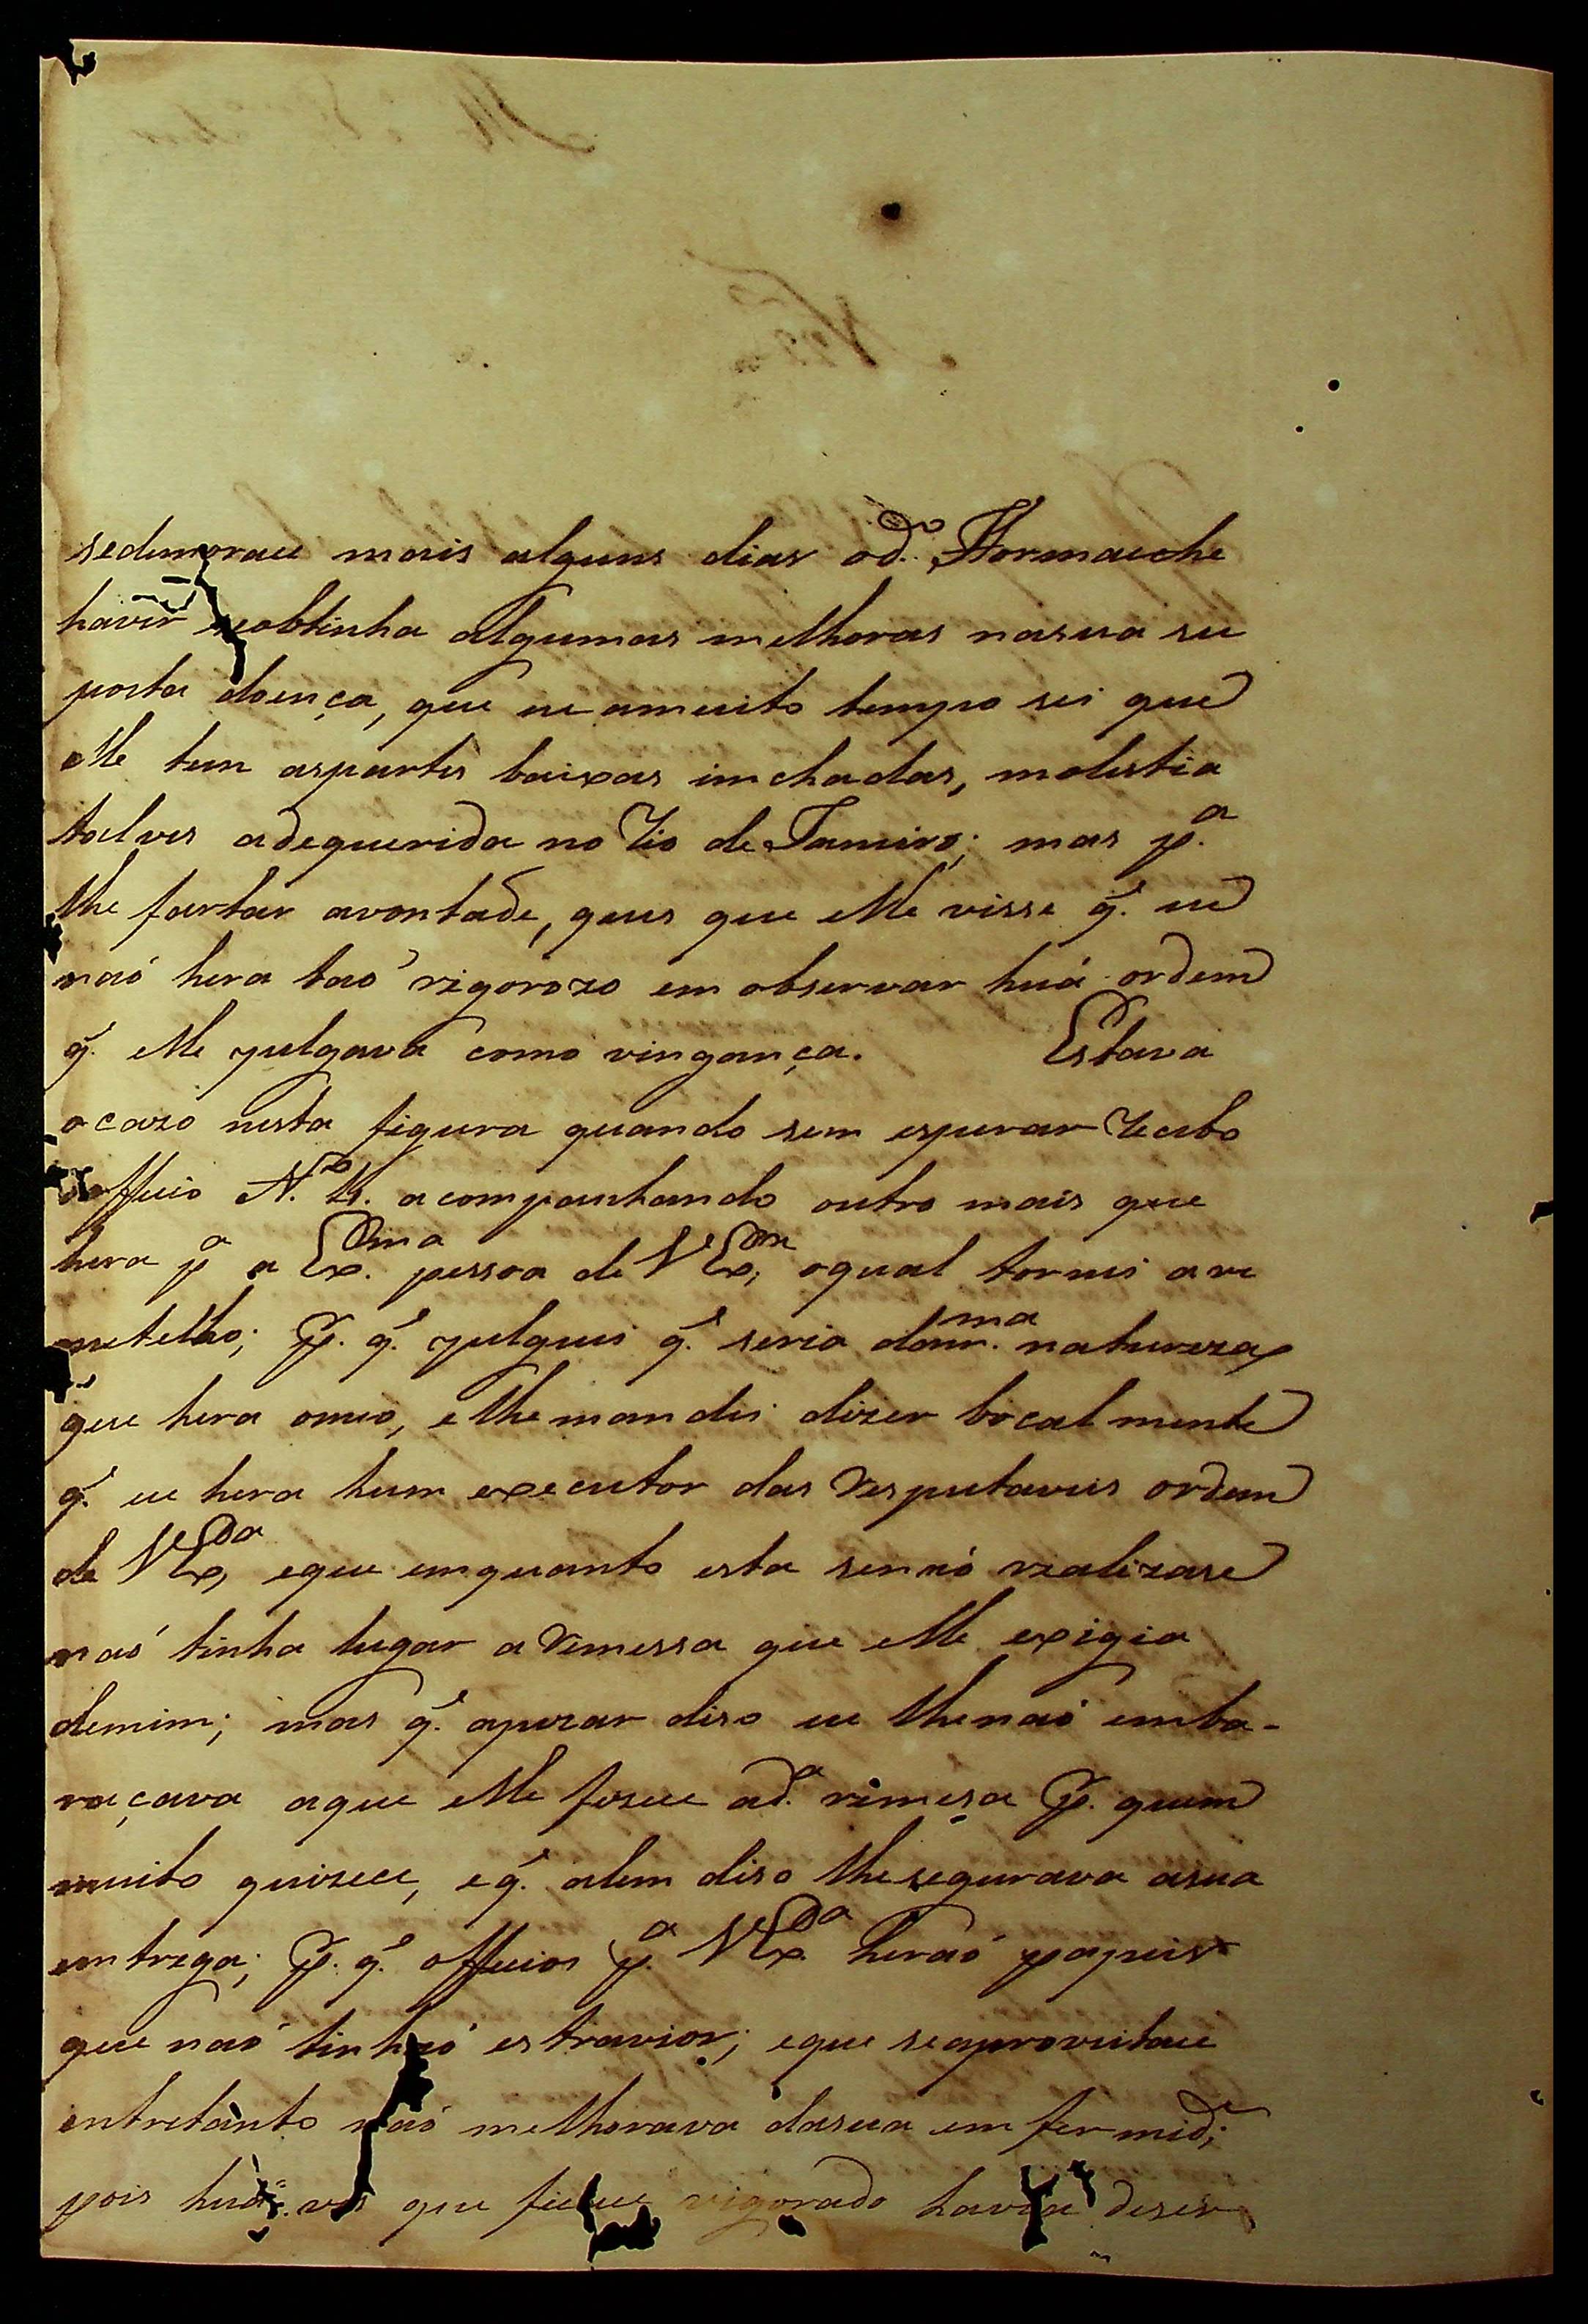 sedemorace mais alguns dias od.º Hormaeche
haver seobtinha algumas melhoras nasua su
posta doença, que eu amuito tempo sei que
elle tem aspartes baixas imchadas, molestia
talves adequerida no Rio de Janeiro; mas p.ª
lhe fartar avontade, quis que elle visse q̃. eu
naó hera taó rigorozo em observar huá ordem
q̃. elle julgava como vingança. Estava
ocazo nesta figura quando sem esperar recebo
oofficio N.º acompanhando outro mais que
hera pª a Ex.ma pessoa de VEx.ª, oqual tornei are
meterlho; P. q̃. julguei q̃. seria dam.ma natureza
que hera omeo, elhemandei dizer bocalmente
q̃. eu hera hum executor das Respetaveis ordem
de VEx.ª, eque emquanto esta senaó realizase
naó tinha lugar a Remessa que elle exigia
demim; mas q̃. apezar diso eu lhenaó emba-
raçava aque elle fizece ad.ª rimesa P. quem
muito quizece, eq̃. alem diso lhesegurava asua
emtrega; P. q̃. officios p.ª VEx.ª heraó papeis
que naó tinhaó estravios; eque seaproveitace
entretanto naó melhorava dasua emfermid.e;
pois huá ves que ficace vigorado havia deser